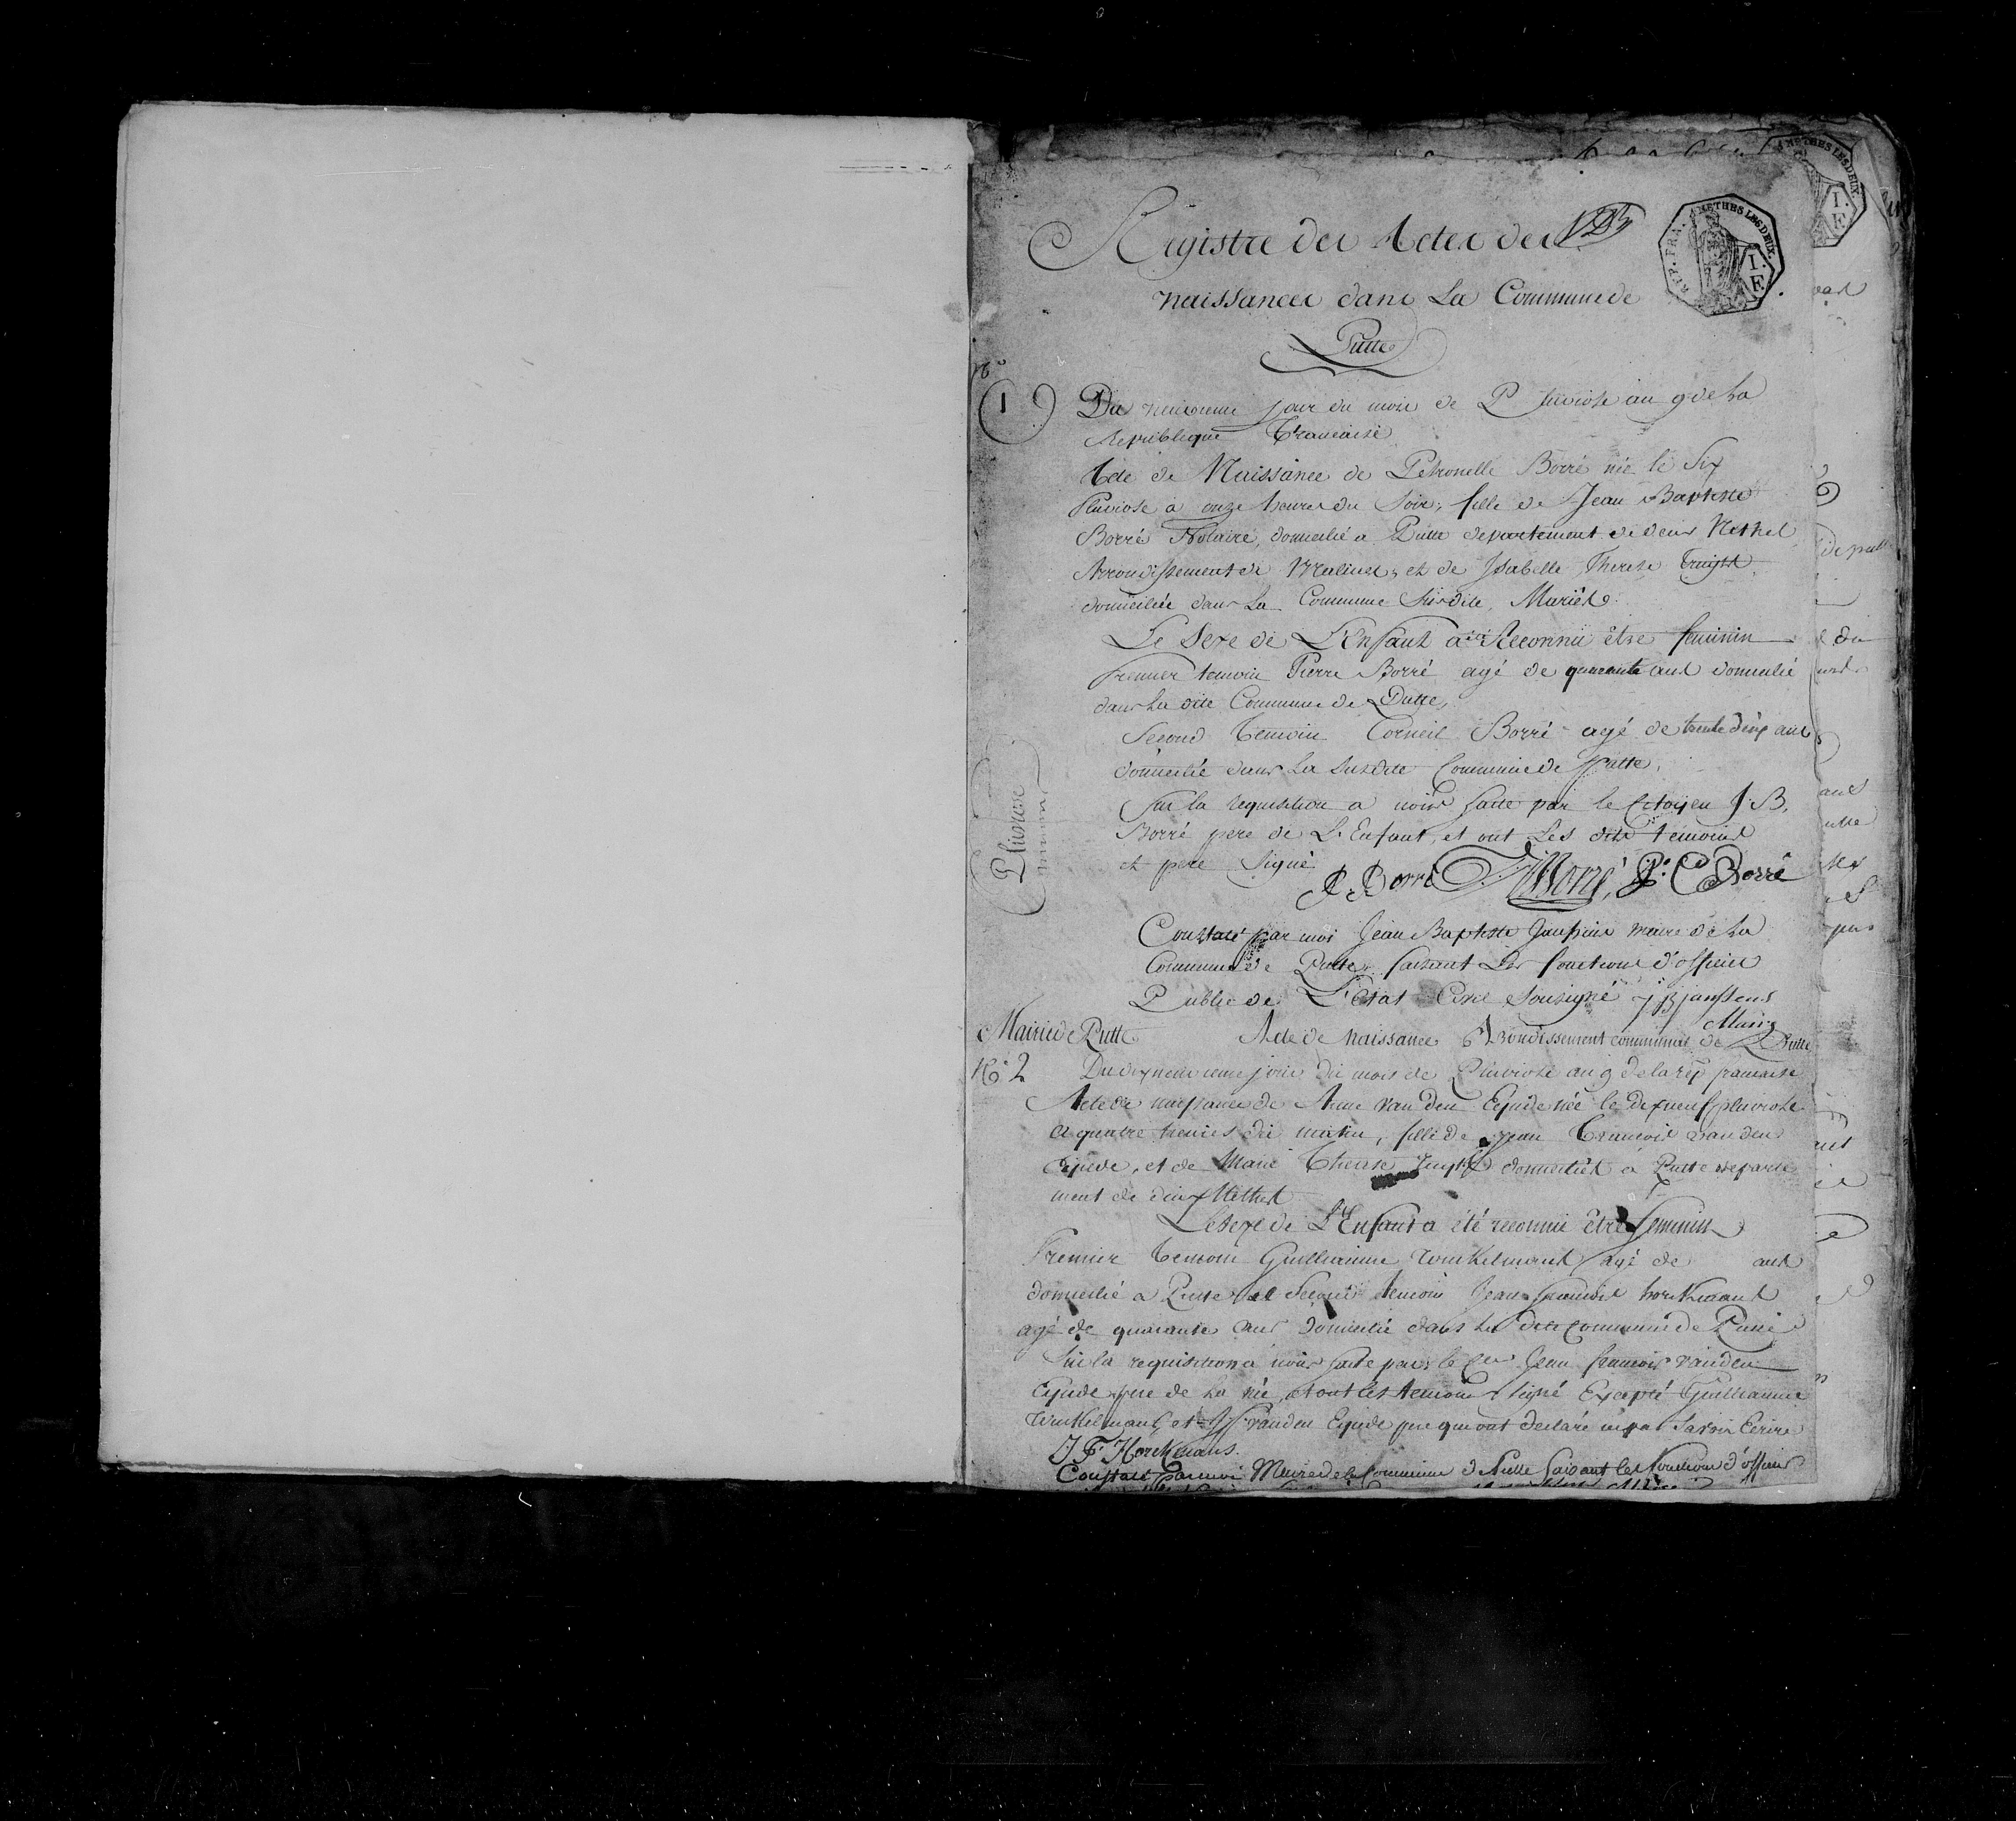 Registre des Actes des
naissances dans La Commune de
Putte
REP. FRA. METHES LES DEUX
I. F.
N°
1
Du neuvieme jour du mois de Pluviose an 9 de La
Republique Francaise
Acte de Naissance de Petronelle Borré née le Six
Pluviose a onze heures du Soir, fille de Jean Baptiste
Borré Notaire, domicilié a Putte departement de deux Nethes
Arrondissement de Malines, et de Isabelle Therese
domiciliée dans La Commune Susdite, Mariés
Le Sexe de L'Enfant a été Reconnu être feminin
Premier temoin Pierre Borré agé de quarante ans domicilié
dans La dite Commune de Putte,
Second Temoin Corneil Borré agé de trente ans
domicilié dans La Susdite Commune de Putte,
Sur la requisition a nous faite par le Citoyen J. B.
Borré pere de L'Enfant, et ont Les dits temoins
et pere Signé
P. Borré J B Borré, P. C Borré
Pluviose
Constaté par moi Jean Baptiste Janssens maire de La
Commune de Putte faisant Les fonctions d'officier
Public de L'Etat Civil Sousigné J B Janssens
Maire
Mairie de Putte Acte de Naissance Arrondissement communal de Putte
N° 2 Du dixneuvieme jour du mois de Pluviose an 9 de la rep francaise
Acte de naissance de Anne Van den Eynde née le dixneuf pluviose
a quatre heures du matin, fille de Jean Francois van den
Eynde, et de Marie Therese domiciliés à Putte departe
ment de deux Nethes
Le Sexe de L'Enfant a été reconnu être feminin
Premier temoin Guilliaume agé de ans
domicilié a Putte et Second temoin Jean francois horckmans
agé de quarante ans Domicilié dans La dite commune de Putte
Sur la requisition a nous faite par le Jean francois vanden
Eynde pere de La née, et ont les temoins signé Excepté Guilliaume
et J: F: vanden Eynde pere qui ont declaré ne pas Savoir Ecrire
J F Horckmans.
Constaté par moi Maire de la Commune de Putte faisant les fonctions d'officier